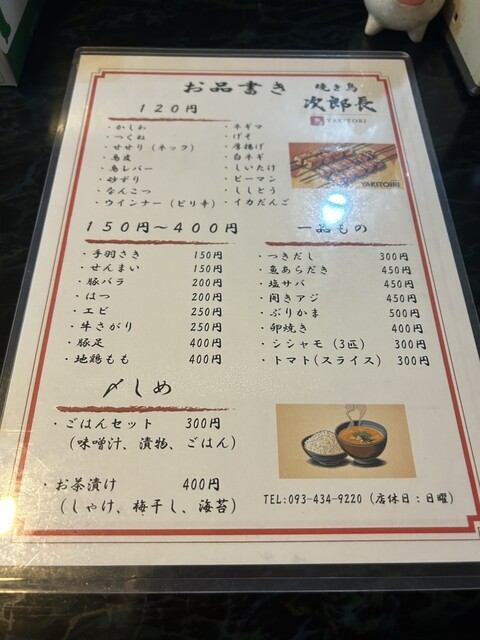 お品書き
焼き鳥
次郎長
YAKITORI
120円
・かしわ
・つくね
・せせり（ネック）
・鳥皮
・鳥レバー
・砂ずり
・なんこつ
・ウインナー（ピリ辛）
・ネギマ
・げそ
・厚揚げ
・白ネギ
・しいたけ
・ピーマン
・ししとう
・イカだんご
YAKITORI
150円〜400円
・手羽さき 150円
・せんまい 150円
・豚バラ 200円
・はつ 200円
・エビ 250円
・牛さがり 250円
・豚足 400円
・地鶏もも 400円
一品もの
・つきだし 300円
・魚あらだき 450円
・塩サバ 450円
・開きアジ 450円
・ぶりかま 500円
・卵焼き 400円
・シシャモ（3匹） 300円
・トマト(スライス) 300円
〆しめ
・ごはんセット 300円
（味噌汁、漬物、ごはん）
・お茶漬け 400円
（しゃけ、梅干し、海苔）
TEL:093-434-9220（店休日：日曜）